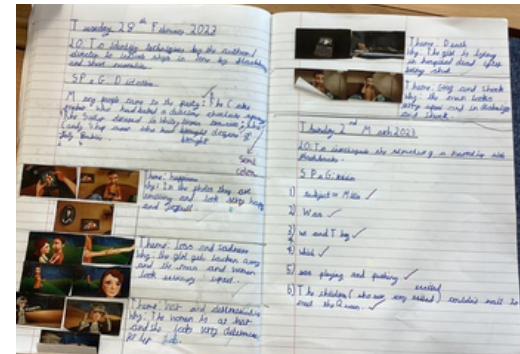 Tuesday 28th February 2023
LO: To identify techniques by the author/
director to indicate shifts in time by flashbacks
and short narrative.
S P a G Dictation
Many people came to the party: the Cake
maker who had baked a delicious chocolate sponge
the Sailor dressed in white, brown
Candy Shop owner who had brought dozens of
Jelly Beans.
brought
semi
colon
Theme: happiness
Why: In the photos they are
smiling and look very happy
and joyfull.
Theme: Loss and sadness
Why: the girl gets taken away
and the man and woman
look seriously upset.
Theme: War and determination
Why: The woman is at war
and she looks very determined
at her job.
Theme: Death
Why: The girl is lying
in hospital dead after
being shot
Theme: Song and Shock
Why: the man looks
very upset and in disbelief
and shock.
Thursday 2nd March 2023
LO: To investigate the structure of a narrative with
flashbacks.
S P a G:
1) subject = Miss
2) Was
3) we and They
4) which
5) was playing and pushing
excited
6) The children (who were very excited) couldn't wait to
meet the Queen.